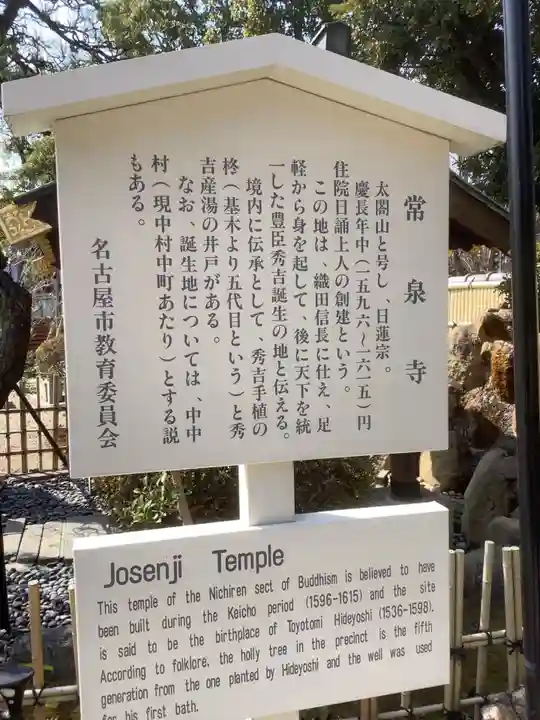 常泉寺
太閤山と号し、日蓮宗。
慶長年中(一五九六~一六一五)円
住院日誦上人の創建という。
この地は、織田信長に仕え、足
軽から身を起して、後に天下を統
一した豊臣秀吉誕生の地と伝える。
境内に伝承として、秀吉手植の
柊(基木より五代目という)と秀
吉産湯の井戸がある。
なお、誕生地については、中中
村(現中村中町あたり)とする説
もある。
名古屋市教育委員会
Josenji Temple
This temple of the Nichiren sect of Buddhism is believed to have
been built during the Keicho period (1596-1615) and the site
is said to be the birthplace of Toyotomi Hideyoshi (1536-1598).
According to folklore, the holly tree in the precinct is the fifth
generation from the one planted by Hideyoshi and the well was used
for his first bath.